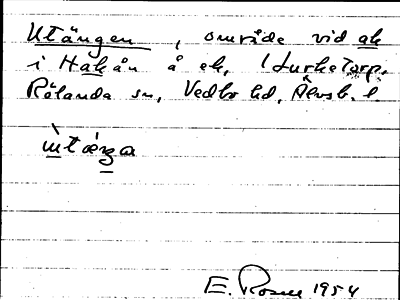 Utängen, område vid åk
i Hakån å ek, Lurketorp,
Rölanda sn, Vedbo hd, Älvsb. l
ùtæŋa
E. Rosen 1954